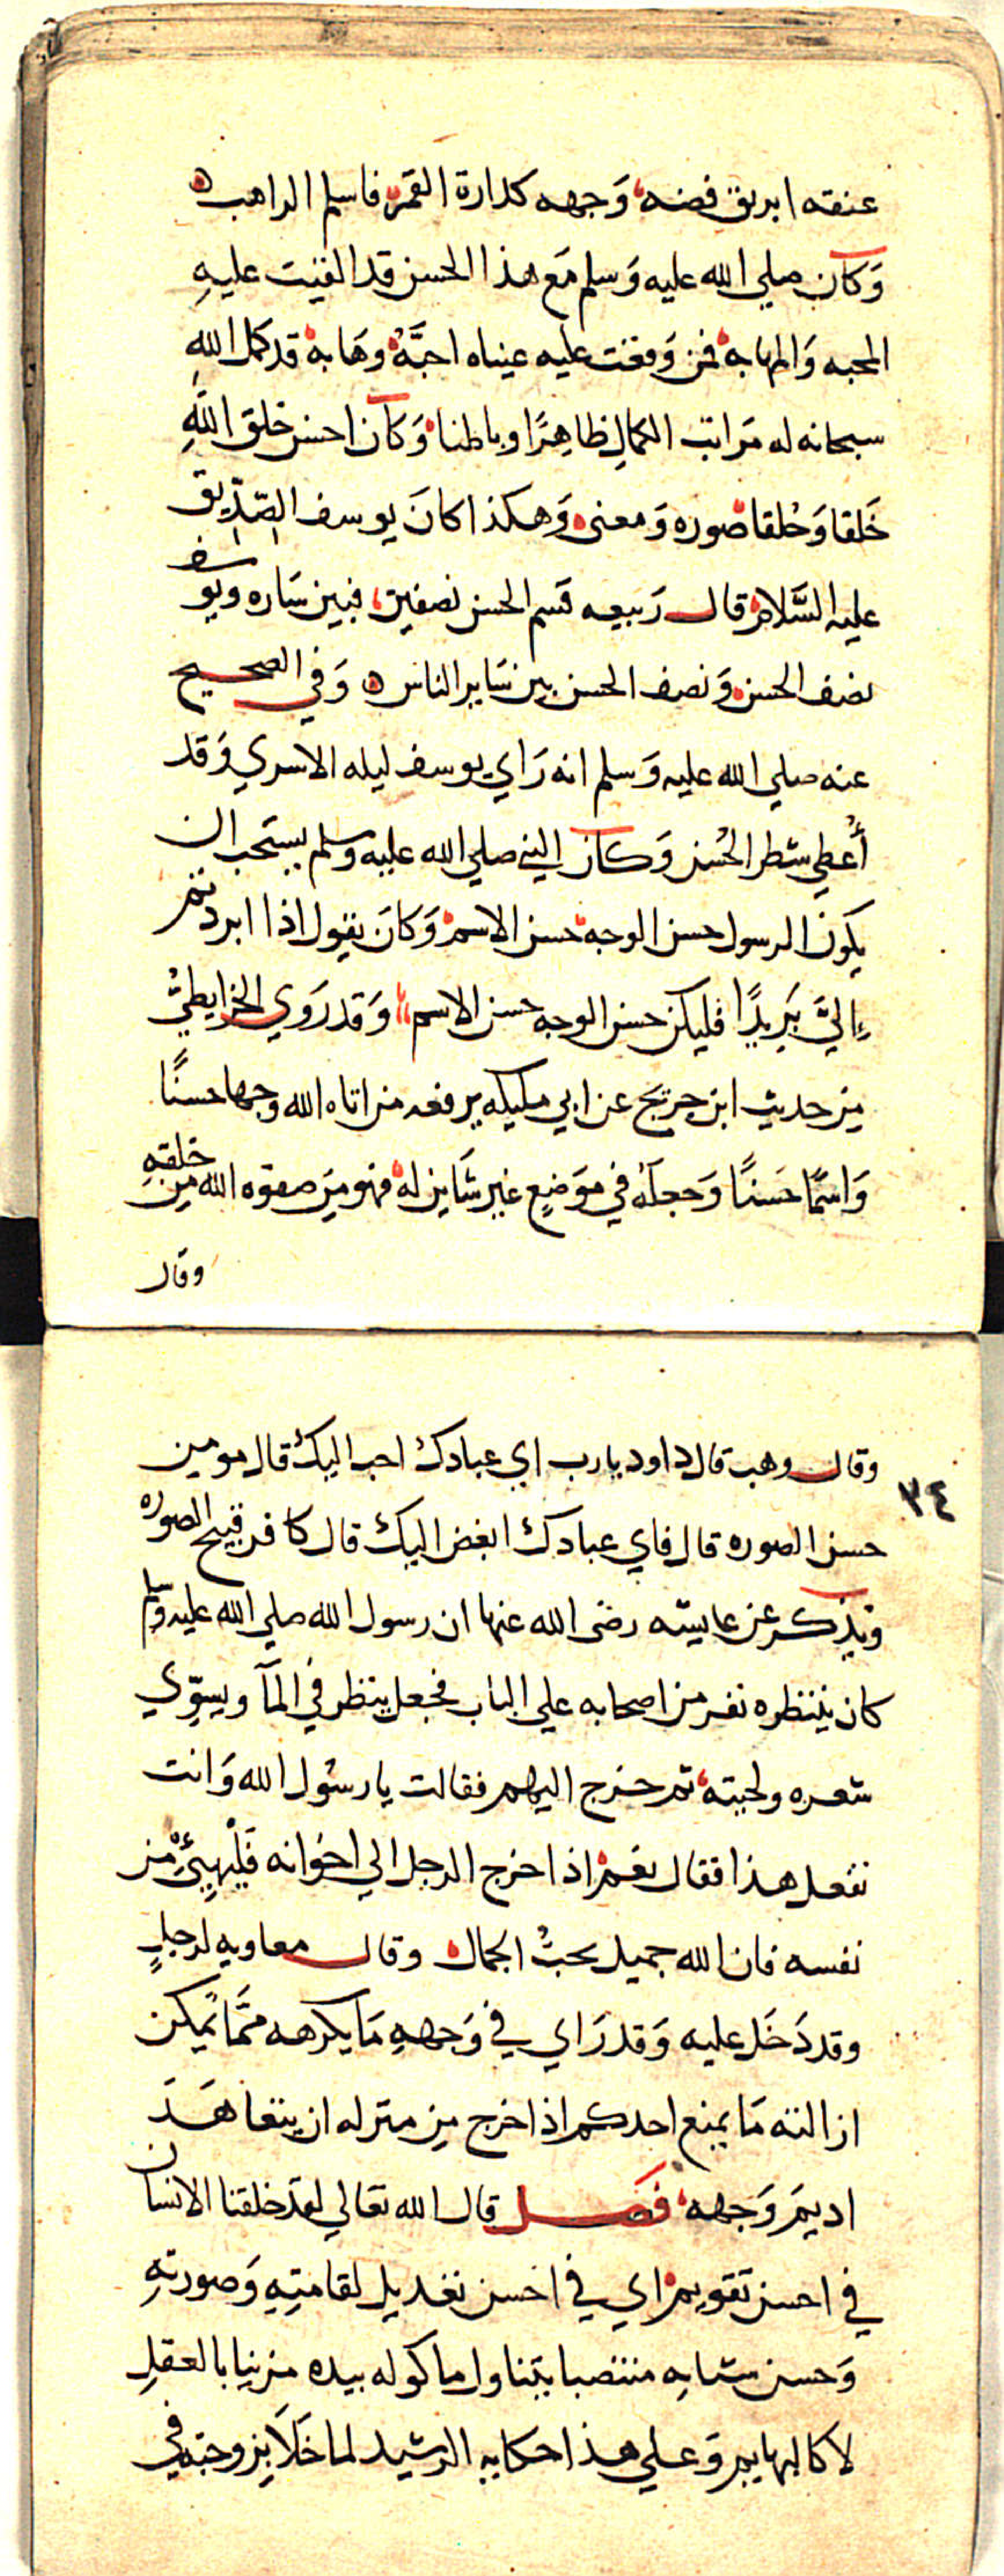 عنقه ابريق فضه وَجهه كدارة القمَر فاسلم الراهب ه
وَكان صلي الله عليه وَسلم مَع هذا الحسن قد القيت عليهِ
المحبه وَالمهابه فمن وَقعت عليه عيناه احبَّهُ وهَابه قد كمل اللهِ
سبحانه له مَراتب الكمالِ ظاهِرًا وباطنا وَكان احسن خلق اللهِ
خَلقا وَخُلقا صوره وَمعنى وَهكذا كانَ يوسف الصّدّيق
عليه السَّلام قال رَبيعه قسم الحسن نصفين فبين سَاره ويوسف
نصف الحسن وَنصف الحسن بين سَاير الناس ه وَفي الصحيح
عنه صلي الله عليه وَسلم انه رَاي يوسف ليله الاسري وَقد
أُعطي شطر الحُسن وَكان النبي صلي الله عليه وسلم يستحب ان
يكون الرسول حسن الوجه حسن الاسم وَكانَ يقول اذا ابردتم
إليَّ بَرِيدًا فليكن حسن الوجه حسن الاسم وَقد رَوي الخرايطيُّ
مِن حديث ابن جريج عن ابي مليكه يرفعه من اتاه الله وجها حسنًا
وَاسمًا حَسنًا وَجعلهُ في مَوَضِعٍ غير شَاين له فهو مِن صفوه الله مِن خلقهِ
وقال
وقال وهب قال داود يارب اي عبادك احب اليك قال مومن
٣٤
حسن الصوره قال فاي عبادك ابغض اليك قال كافر قبيح الصوره
ويذكر عن عايشه رضى الله عنها ان رسول الله صلي الله عليه وسلم
كان ينتظره نفر من اصحابه علي الباب فجعل ينظر في المآ ويسوّي
شعره ولحيته ثم خرج اليهم فقالت يا رسُول الله وَانت
تفعل هذا فقال نعم اذا خرج الرجل الي اخوانه فَلْيُهيِّئْ من
نفسه فان الله جميل يحبُّ الجمال وقال معاويه لرجلٍ
وقد دَخَل عليه وَقد رَاي في وَجههِ مَا يكرهه مِمَّا يمكن
ازالته مَا يمنع احدكم اذا خرج مِن منزله ان يتعاهَدَ
اديمَ وَجهه فَصل قال الله تعَالي لقد خلقنا الانسان
في احسن تقويم اي في احسن تعديل لقامتِهِ وَصورتهِ
وَحسن شبابه منتصبا يتناول ماكوله بيده مزينا بالعقلِ
لا كالبهايم وَعلي هذا حكايه الرشيد لما خَلَا بزوجته في